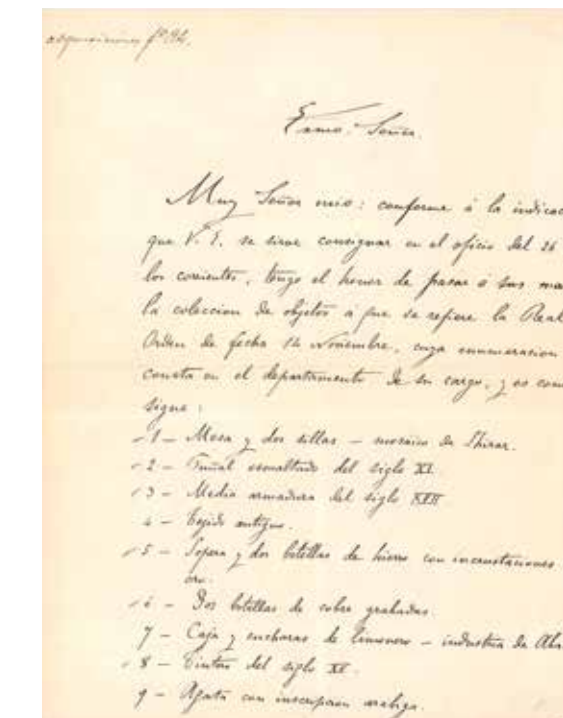 adquisiciones fº 92.
Exmo. Señor.
Muy Señor mio: conforme á la indicac
que V. E. se sirve consignar en el oficio del 26
los corrientes, tengo el honor de pasar á sus ma
la coleccion de objetos á que se refiere la Real
Orden de fecha 14 Noviembre, cuya enumeracion
consta en el departamento de su cargo, y es com
sigue:
1 - Mesa y dos sillas - mosaico de Shiraz.
2 - Puñal esmaltado del siglo XI.
3 - Media armadura del siglo
4 - Tejido antiguo.
5 - Sopera y dos botellas de hierro con incrustaciones
oro.
6 - Dos botellas de cobre grabadas.
7 - Caja y cucharas de limonero - industria de Aba
8 - Tintero del siglo XV.
9 - Agata con inscripcion arabiga.